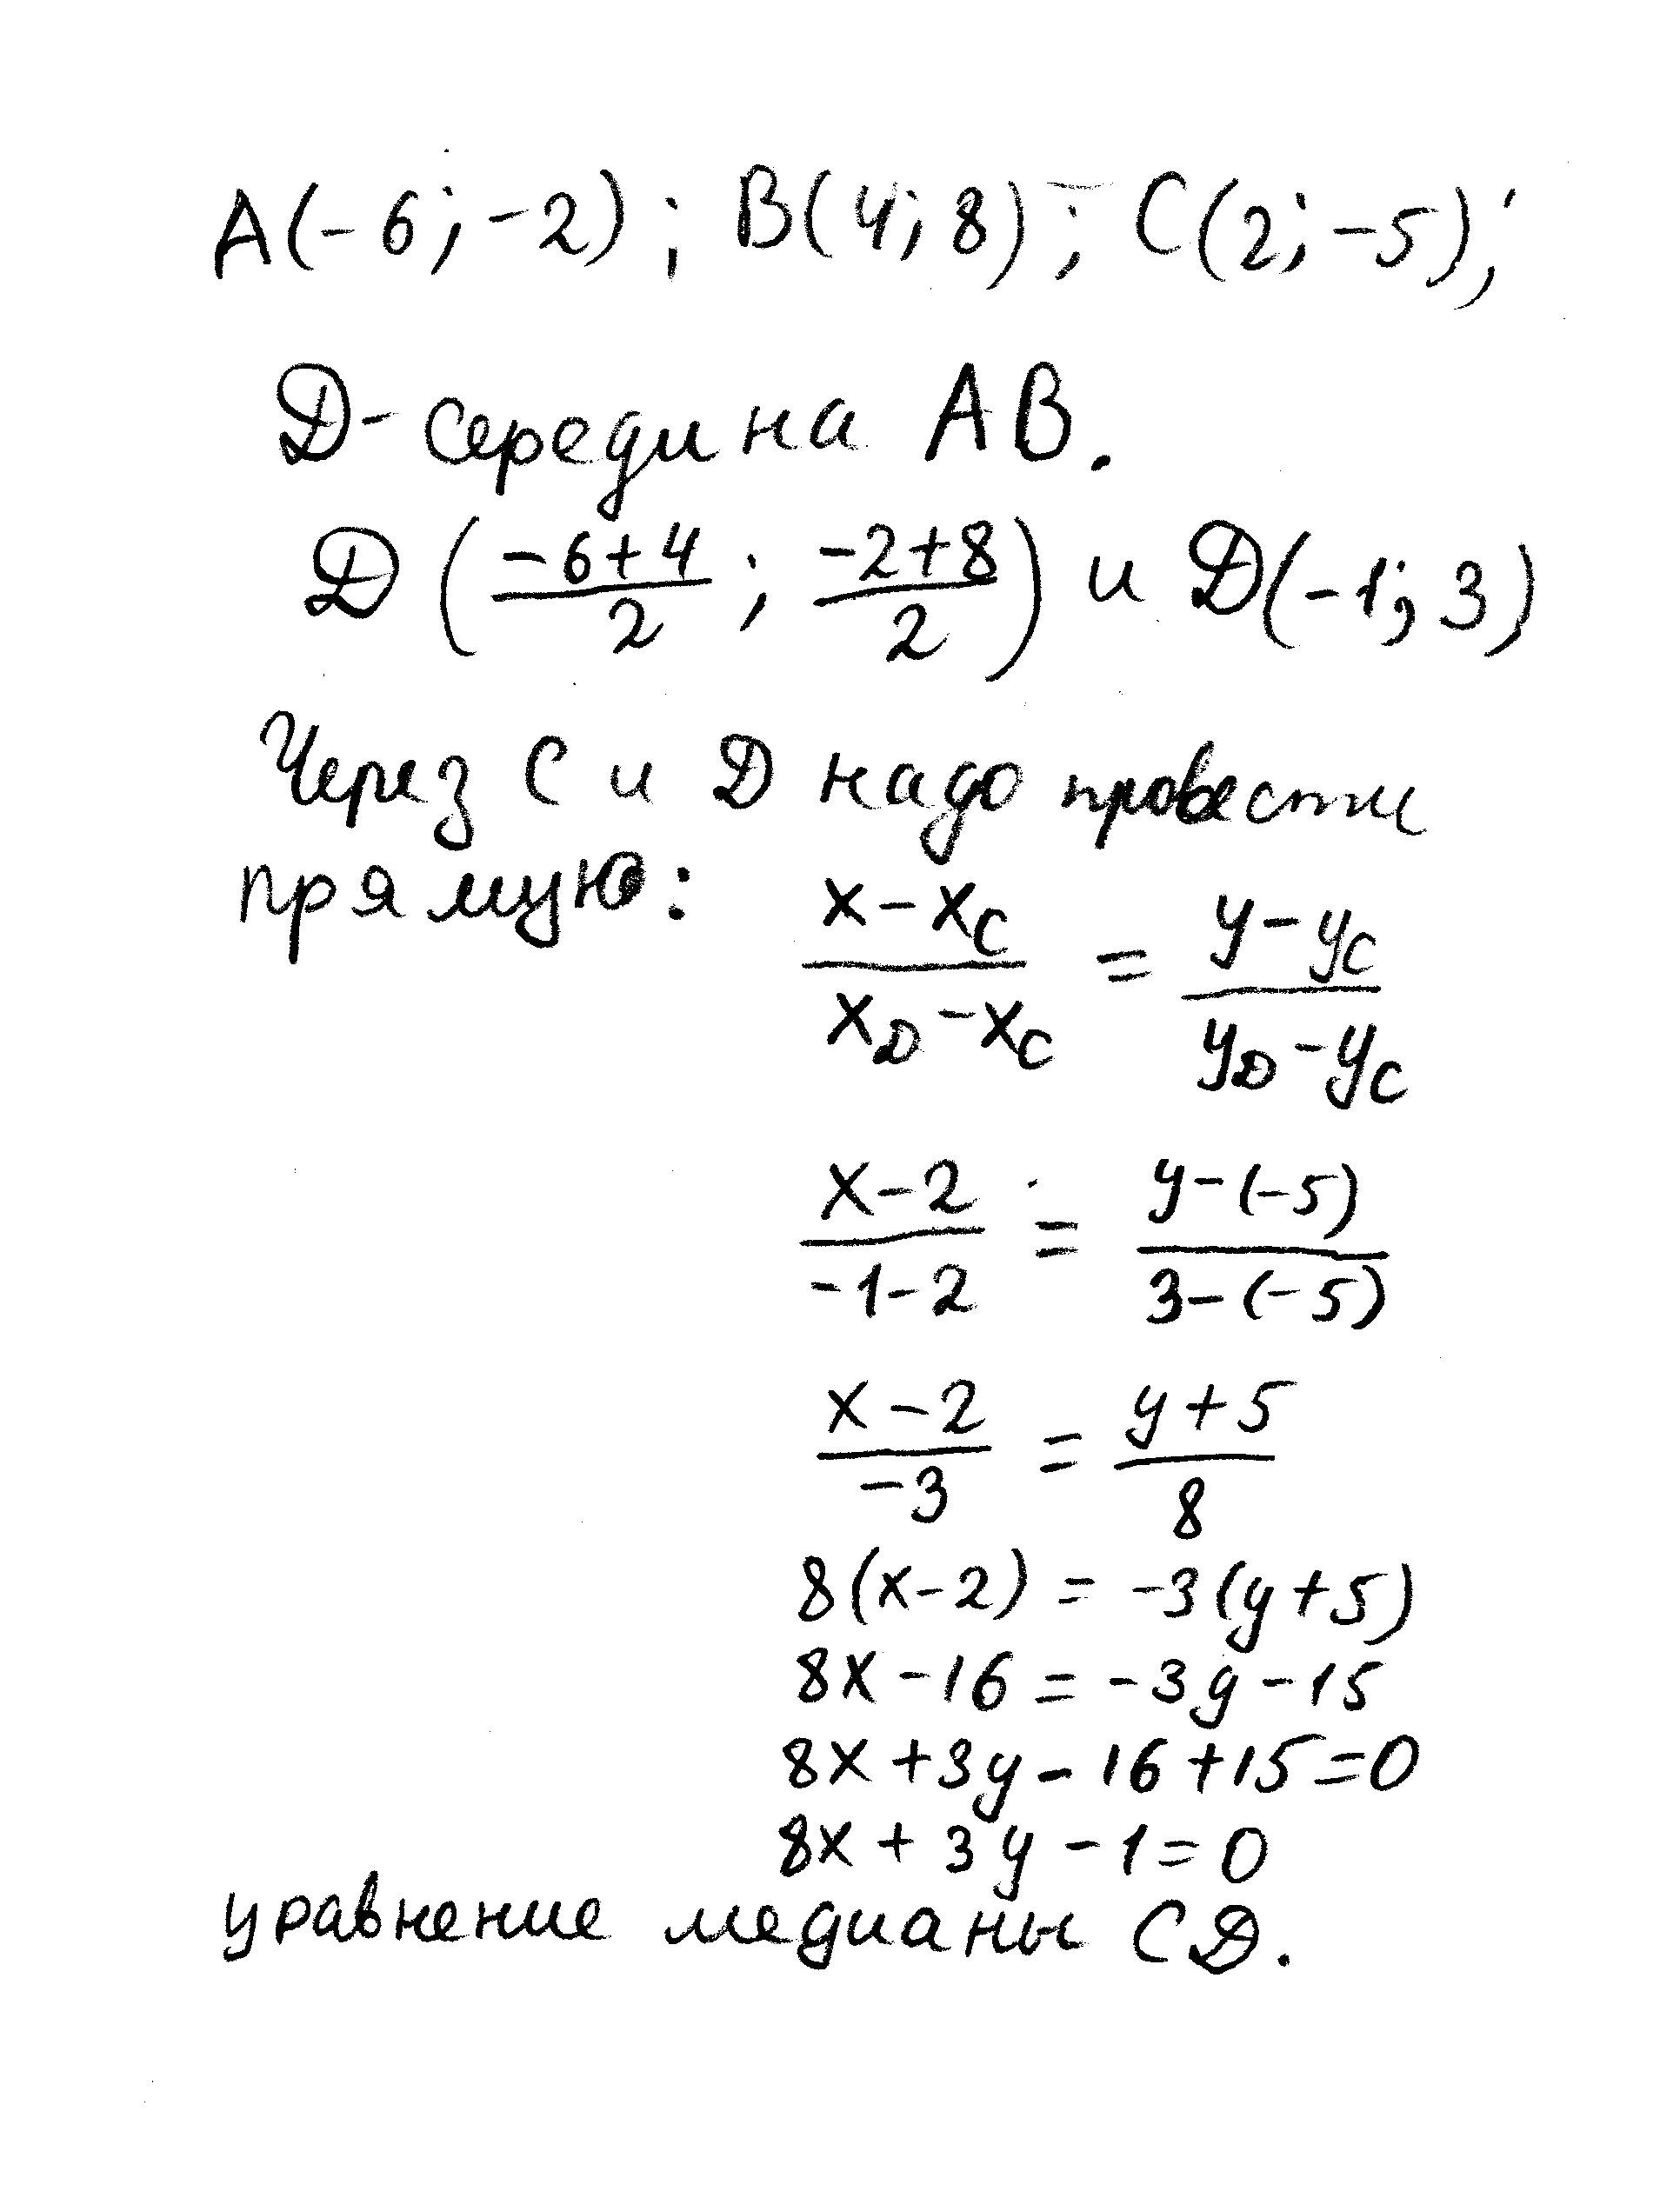 A(-6; -2); B(4; 8); C(2; -5);
D - середина AB.
D((-6+4)/2; (-2+8)/2) и D(-1; 3)
Через C и D надо провести
прямую: (x-x_C)/(x_D-x_C) = (y-y_C)/(y_D-y_C)
(x-2)/(-1-2) = (y-(-5))/(3-(-5))
(x-2)/(-3) = (y+5)/8
8(x-2) = -3(y+5)
8x-16 = -3y-15
8x+3y-16+15=0
8x+3y-1=0
уравнение медианы CD.